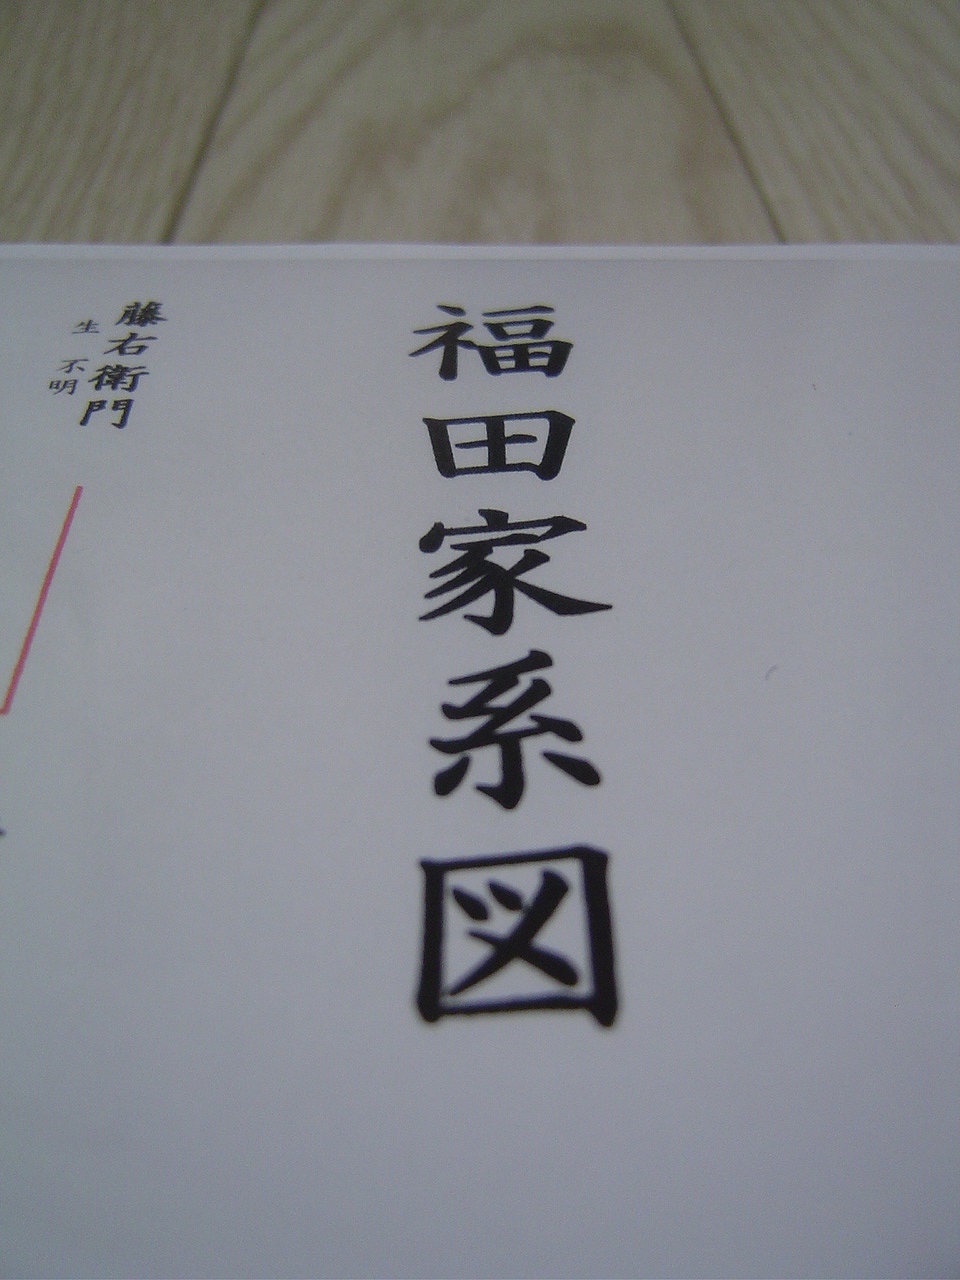 福田家系図
藤右衛門
生 不明